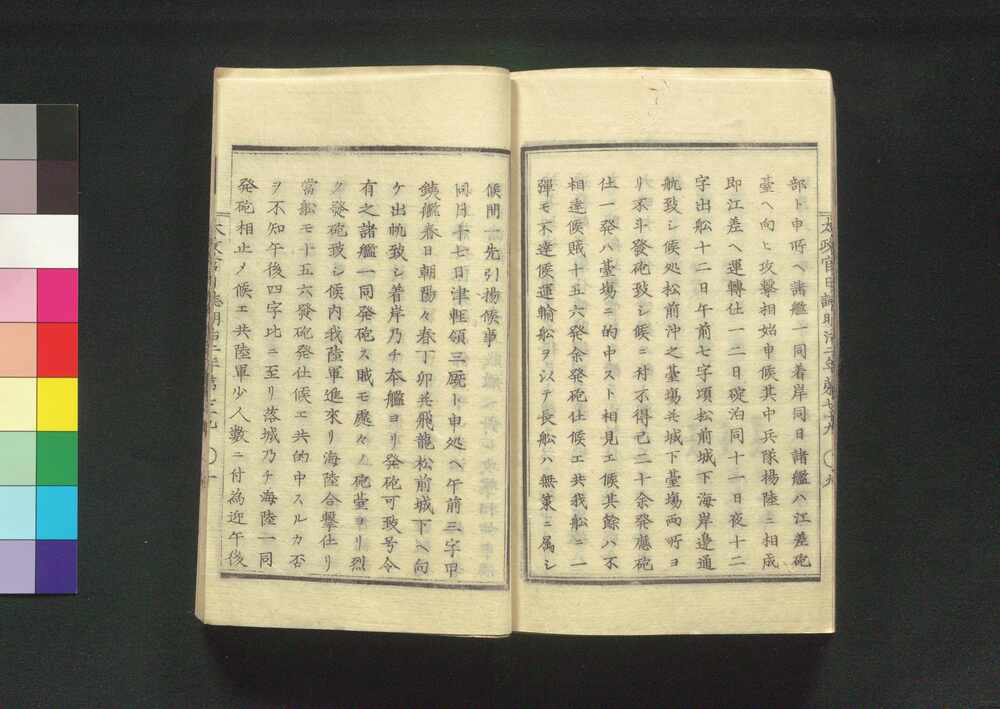 太政官日誌明治二年第七十九 九
部ト申所ヘ諸艦一同着岸同日諸艦ハ江差砲
臺ヘ向ヒ攻擊相始申候其中兵隊揚陸ニ相成
即江差ヘ運轉仕一二日碇泊同十一日夜十二
字出船十二日午前七字頃松前城下海岸邊通
航致シ候処松前沖之臺塲共城下臺塲両所ヨ
リ不斗發砲致シ候ニ付不得已二十余発應砲
仕一発ハ臺塲ニ的中スト相見エ候其餘ハ不
相達候賊十五六発余発砲仕候エ共我船ニ一
彈モ不達候運輸船ヲ以テ長船ハ無策ニ属シ
候間一先引揚候事
同月十七日津軽領三厩ト申処ヘ午前三字甲
銕艦春日朝陽々春丁卯共飛龍松前城下ヘ向
ケ出帆致シ着岸乃チ本艦ヨリ発砲可致号令
有之諸艦一同発砲ス賊モ處々ノ砲臺ヨリ烈
ク發砲致シ候内我陸軍進來リ海陸合擊仕リ
當船モ十五六發砲発仕候エ共的中スルカ否
ヲ不知午後四字比ニ至リ落城乃チ海陸一同
発砲相止ノ候エ共陸軍少人數ニ付為迎午後
太政官日誌明治二年第七十九 十